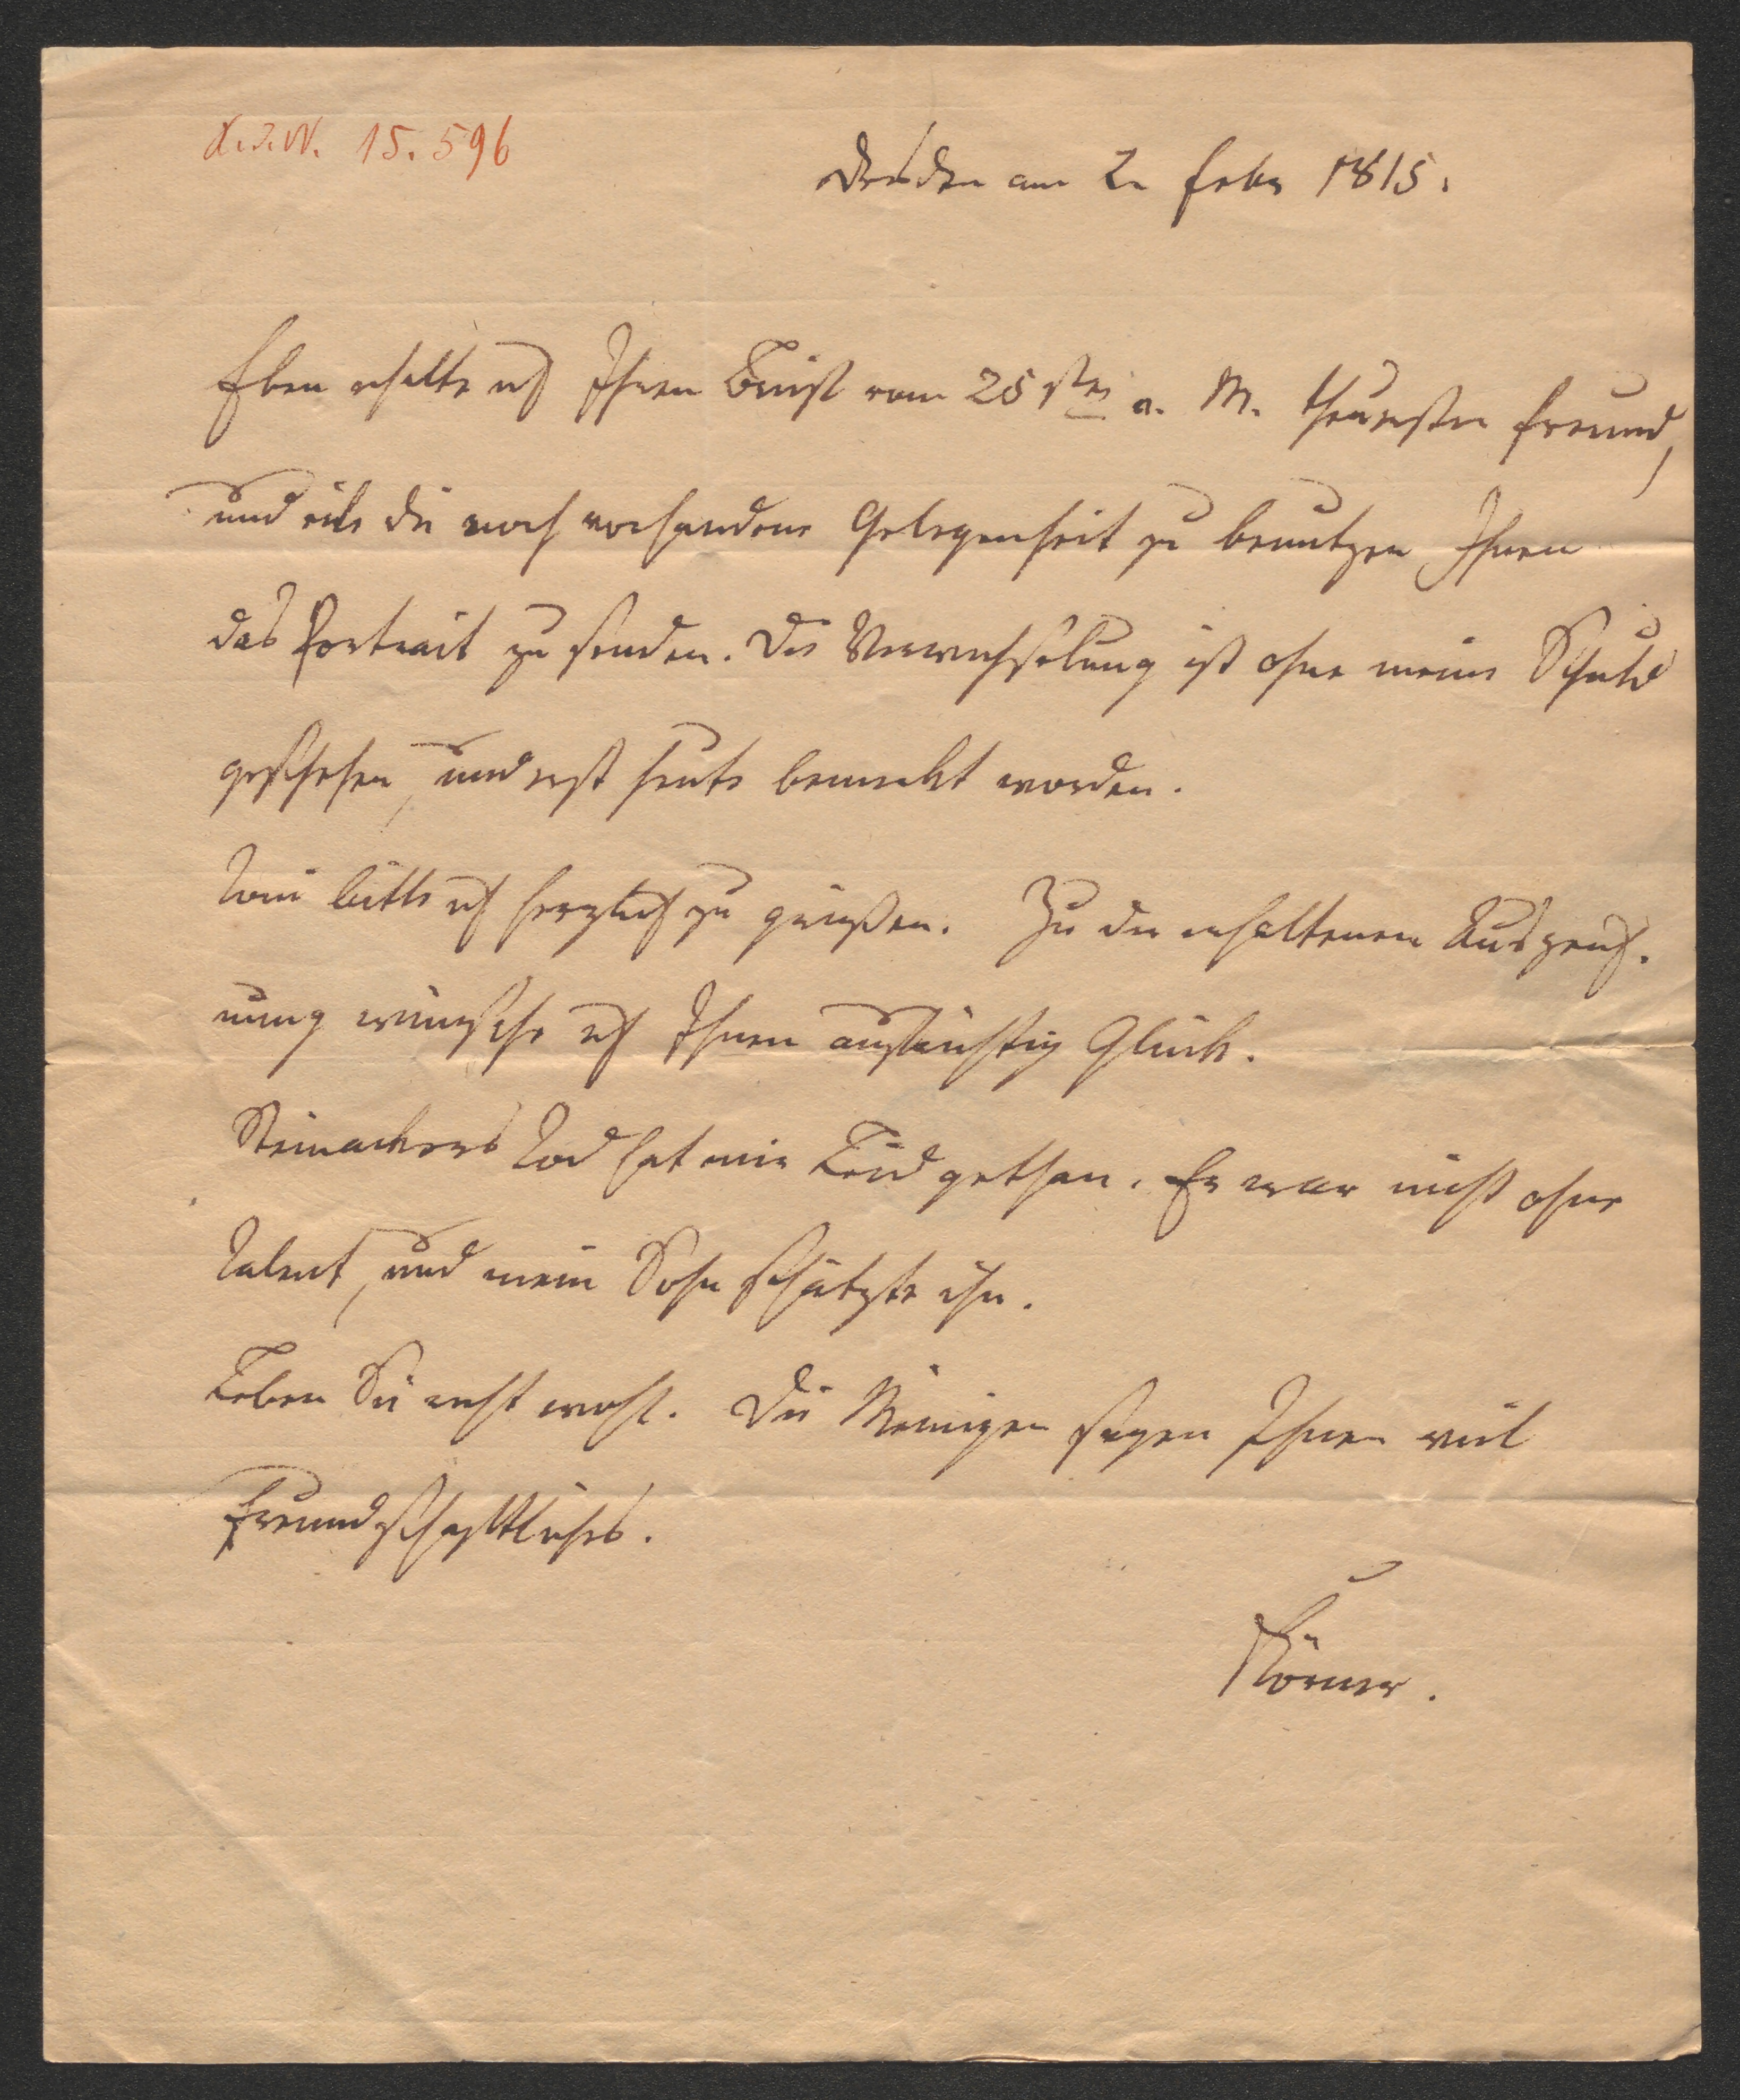 15.596
Dresden am 2n Febr 1815.
Eben erhalte ich Ihren Brief vom 25sten v. M. theurester Freund,
und eile die noch vorhandene Gelegenheit zu benutzen Ihnen
das Portrait zu senden. Die Verwechselung ist ohne meine Schuld
geschehen, und erst heute bemerkt worden.
bitte ich herzlich zu grüßen. Zu der erhaltenen Auszeich-
nung wünsche ich Ihnen aufrichtig Glück.
Steinackers Tod hat mir Leid gethan. Er war nicht ohne
Talent, und mein Sohn schätzte ihn.
Leben Sie recht wohl. Die Meinigen sagen Ihnen viel
Freundschaftliches.
Körner.